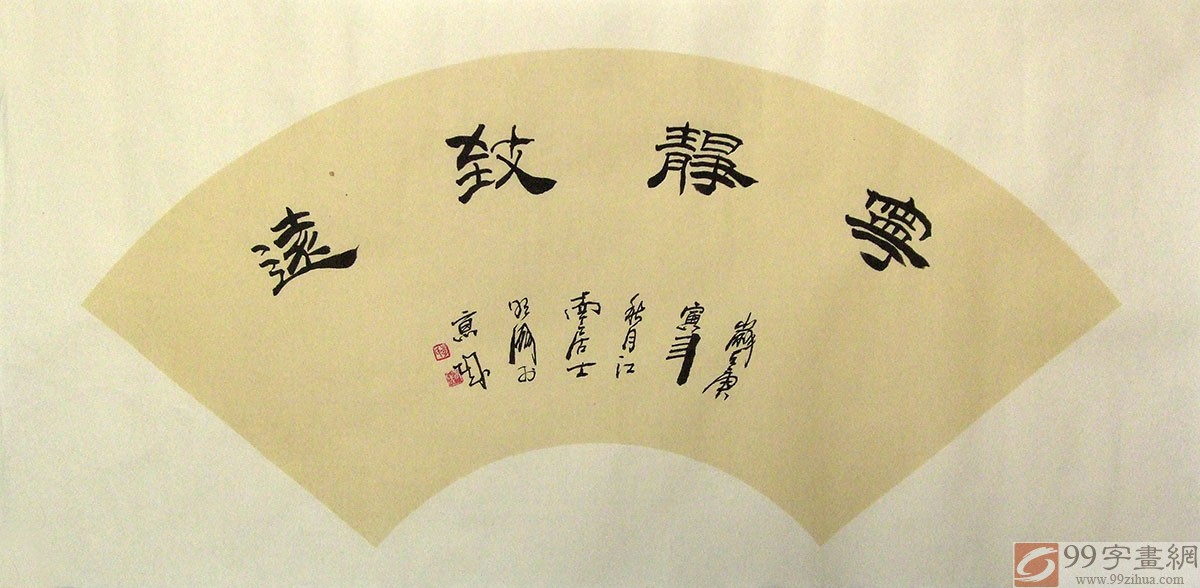 寧靜致遠
歲在庚
寅年
秋月江
南居士
明溯於
京城
99字畫網
www.99zihua.com